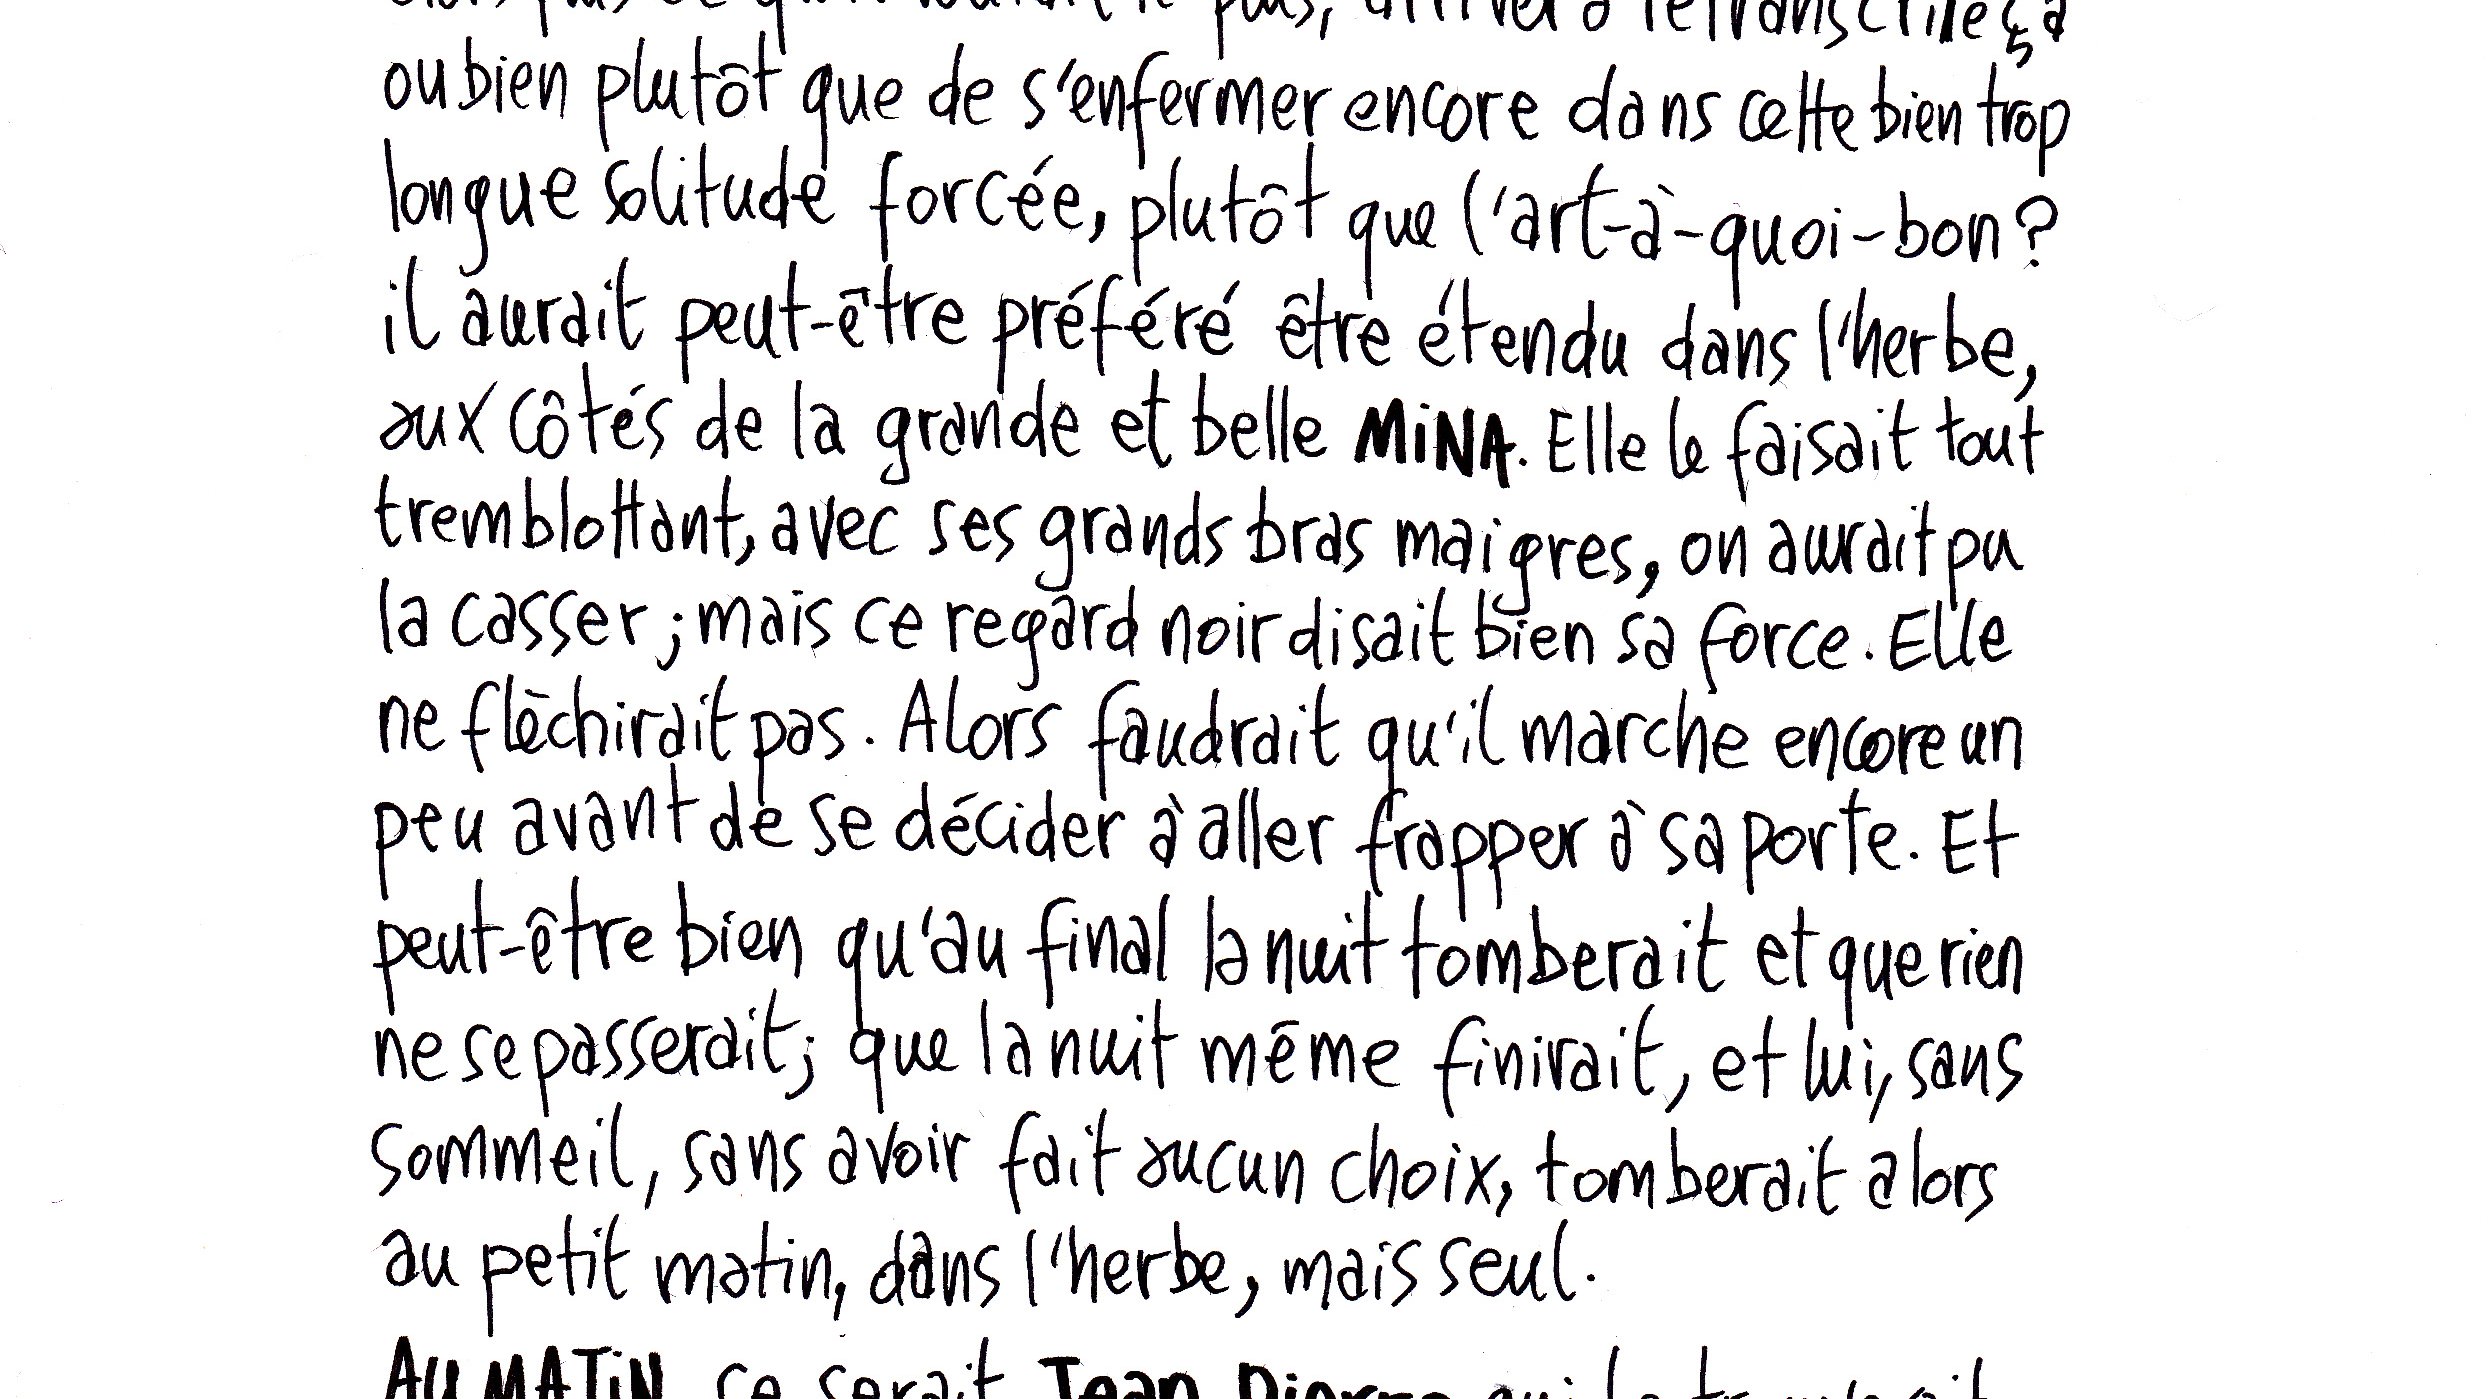 plus, arriver à retranscrire ça
ou bien plutôt que de s'enfermer encore dans cette bien trop
longue solitude forcée, plutôt que l'art-à-quoi-bon?
il aurait peut-être préféré être étendu dans l'herbe,
aux côtés de la grande et belle MiNA. Elle le faisait tout
tremblottant, avec ses grands bras maigres, on aurait pu
la casser; mais ce regard noir disait bien sa force. Elle
ne flèchirait pas. Alors faudrait qu'il marche encore un
peu avant de se décider à aller frapper à sa porte. Et
peut-être bien qu'au final la nuit tomberait et que rien
ne se passerait; que la nuit même finirait, et lui, sans
sommeil, sans avoir fait aucun choix, tomberait alors
au petit matin, dans l'herbe, mais seul.
AU MATiN, ce serait Jean Pierre qui le trouverait